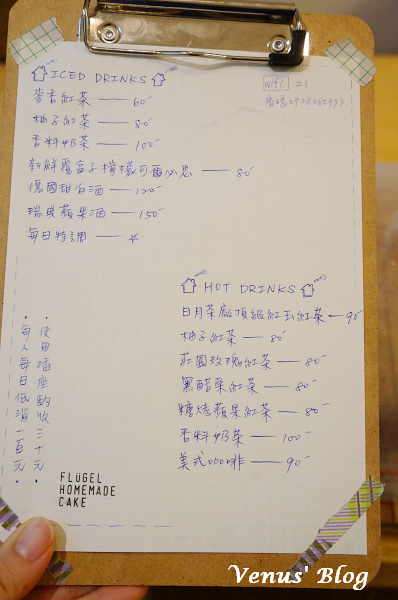 ICED DRINKS
wifi 21
密碼0928585973
麥香紅茶 — 60
柚子紅茶 — 80
香料奶茶 — 100
新鮮覆盆子檸檬可爾必思 — 80
德國甜白酒 — 120
瑞典蘋果酒 — 150
每日特調 — ☆
HOT DRINKS
日月茶廠頂級紅玉紅茶 — 90
柚子紅茶 — 80
莊園玫瑰紅茶 — 80
黑醋栗紅茶 — 80
糖烤蘋果紅茶 — 80
香料奶茶 — 100
美式咖啡 — 90
・使用插座酌收三十元
・每人每日低消一百元
FLÜGEL
HOMEMADE
CAKE
Venus' Blog